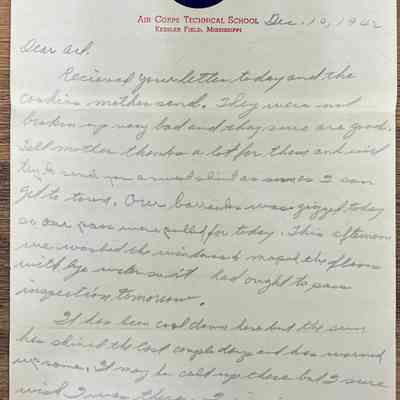 AIR CORPS TECHNICAL SCHOOL Dec. 10, 1942
KEESLER FIELD, MISSISSIPPI
Dear
Recieved your letter today and the
cookies mother send. They were not
broken up very bad and they sure are good.
Tell mother thanks a lot for them and will
try to send you as soon as I can
get to town. Our barracks was gigged today
so our pass were pulled for today. This afternoon
we washed the windows & moped the floors
with lye water so it had ought to pass
inspection tomorrow.
It has been cool down here but the sun
has shined the last couple days and has warmed
up some. It may be cold up there but I sure
wish I was there